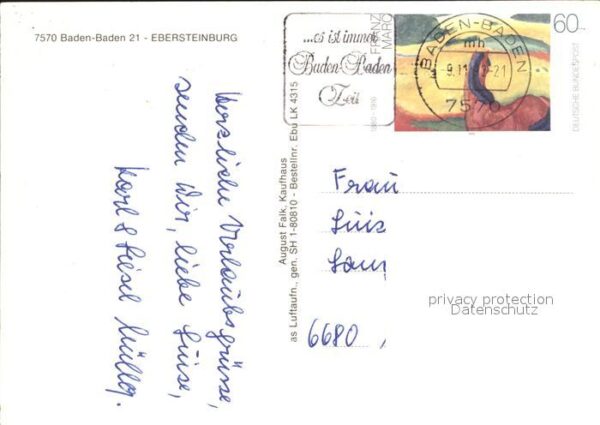 7570 Baden-Baden 21 - EBERSTEINBURG
...es ist immer
Baden-Baden
Zeit
FRANZ
MARC
1880-1916
60
DEUTSCHE BUNDESPOST
BADEN-BADEN
mh
9.11
-21
7570
Herzliche Urlaubsgrüsse,
senden Wir, liebe Luise,
Karl & Liesel Müller.
August Falk, Kaufhaus
as Luftaufn., gen. SH 1-80810 - Bestellnr. Ebu LK 4315
Frau
6680,
privacy protection
Datenschutz